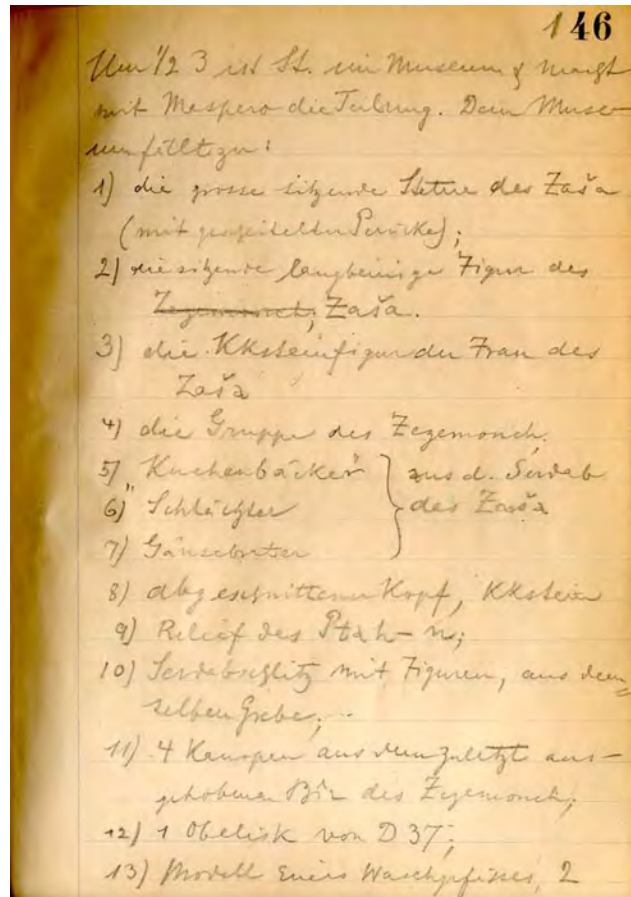 146
Um 1/2 3 ist St. im Museum & macht
mit Maspero die Teilung. Dem Muse-
um fällt zu:
1) die grosse sitzende Statue des Zaša
(mit gescheitelter Perücke);
2) die sitzende langbeinige Figur des
Zegemonch; Zaša.
3) die Kksteinfigur der Frau des
Zaša
4) die Gruppe des Zegemonch.
5) Kuchenbäcker } aus d. Serdab
6) " Schlächter des Zaša
7) Gänsebrater
8) abgeschnittener Kopf, Kkstein
9) Relief des Ptah-n;
10) Serdabschlitz mit Figuren, aus dem=
selben Grabe;
11) 4 Kanopen aus dem zuletzt aus-
gehobenen Bir des Zegemonch;
12) 1 Obelisk von D 37;
13) Modell eines Waschgefässes, 2